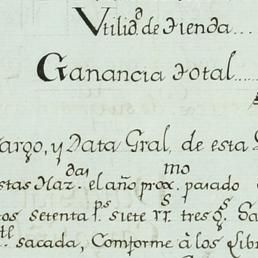 Vtilid.ᵃ de tienda...
Ganancia total.....
argo, y Data Gral, de esta
stas Haz.ᵈᵃˢ el año prox.ᵐᵒ pasado
os setenta p.ˢ siete rr.ˢ tres q.ˢ
sacada, Comforme à los libr